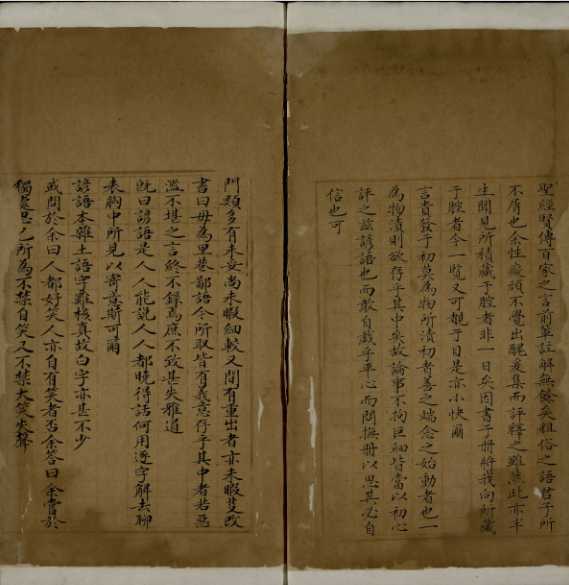 聖經賢傳百家之言前輩註解無餘矣粗俗之語君子所
不屑也余性癡頑不覺出醜爰集而評釋之雖然此亦半
生聞見所積藏于腔者非一日矣因書于冊將我向所藏
于腔者令一覽又可覩于目是亦小快爾
言貴發于初莫為物所漬初者善之端念之始動者也一
為物漬則欲存乎其中矣故論事不拘巨細皆當以初心
評之茲諺語也而敢自戲乎平心而閱撫冊以思其必自
信也可
門類多有未妥尚未暇細較又間有重出者亦未暇更改
書曰毋為里巷鄙語今所取皆有義意存乎其中者若惡
濫不堪之言終不錄焉庶不致甚失雅道
既曰諺語是人人能說人人都曉得話何用逐字解去聊
表胸中所見以寄意斯可爾
諺語本雜土語字難核真故白字亦甚不少
或問於余曰人都好笑人亦自有笑者否余答曰余嘗於
獨處思己所為不禁自笑又不禁大笑失聲